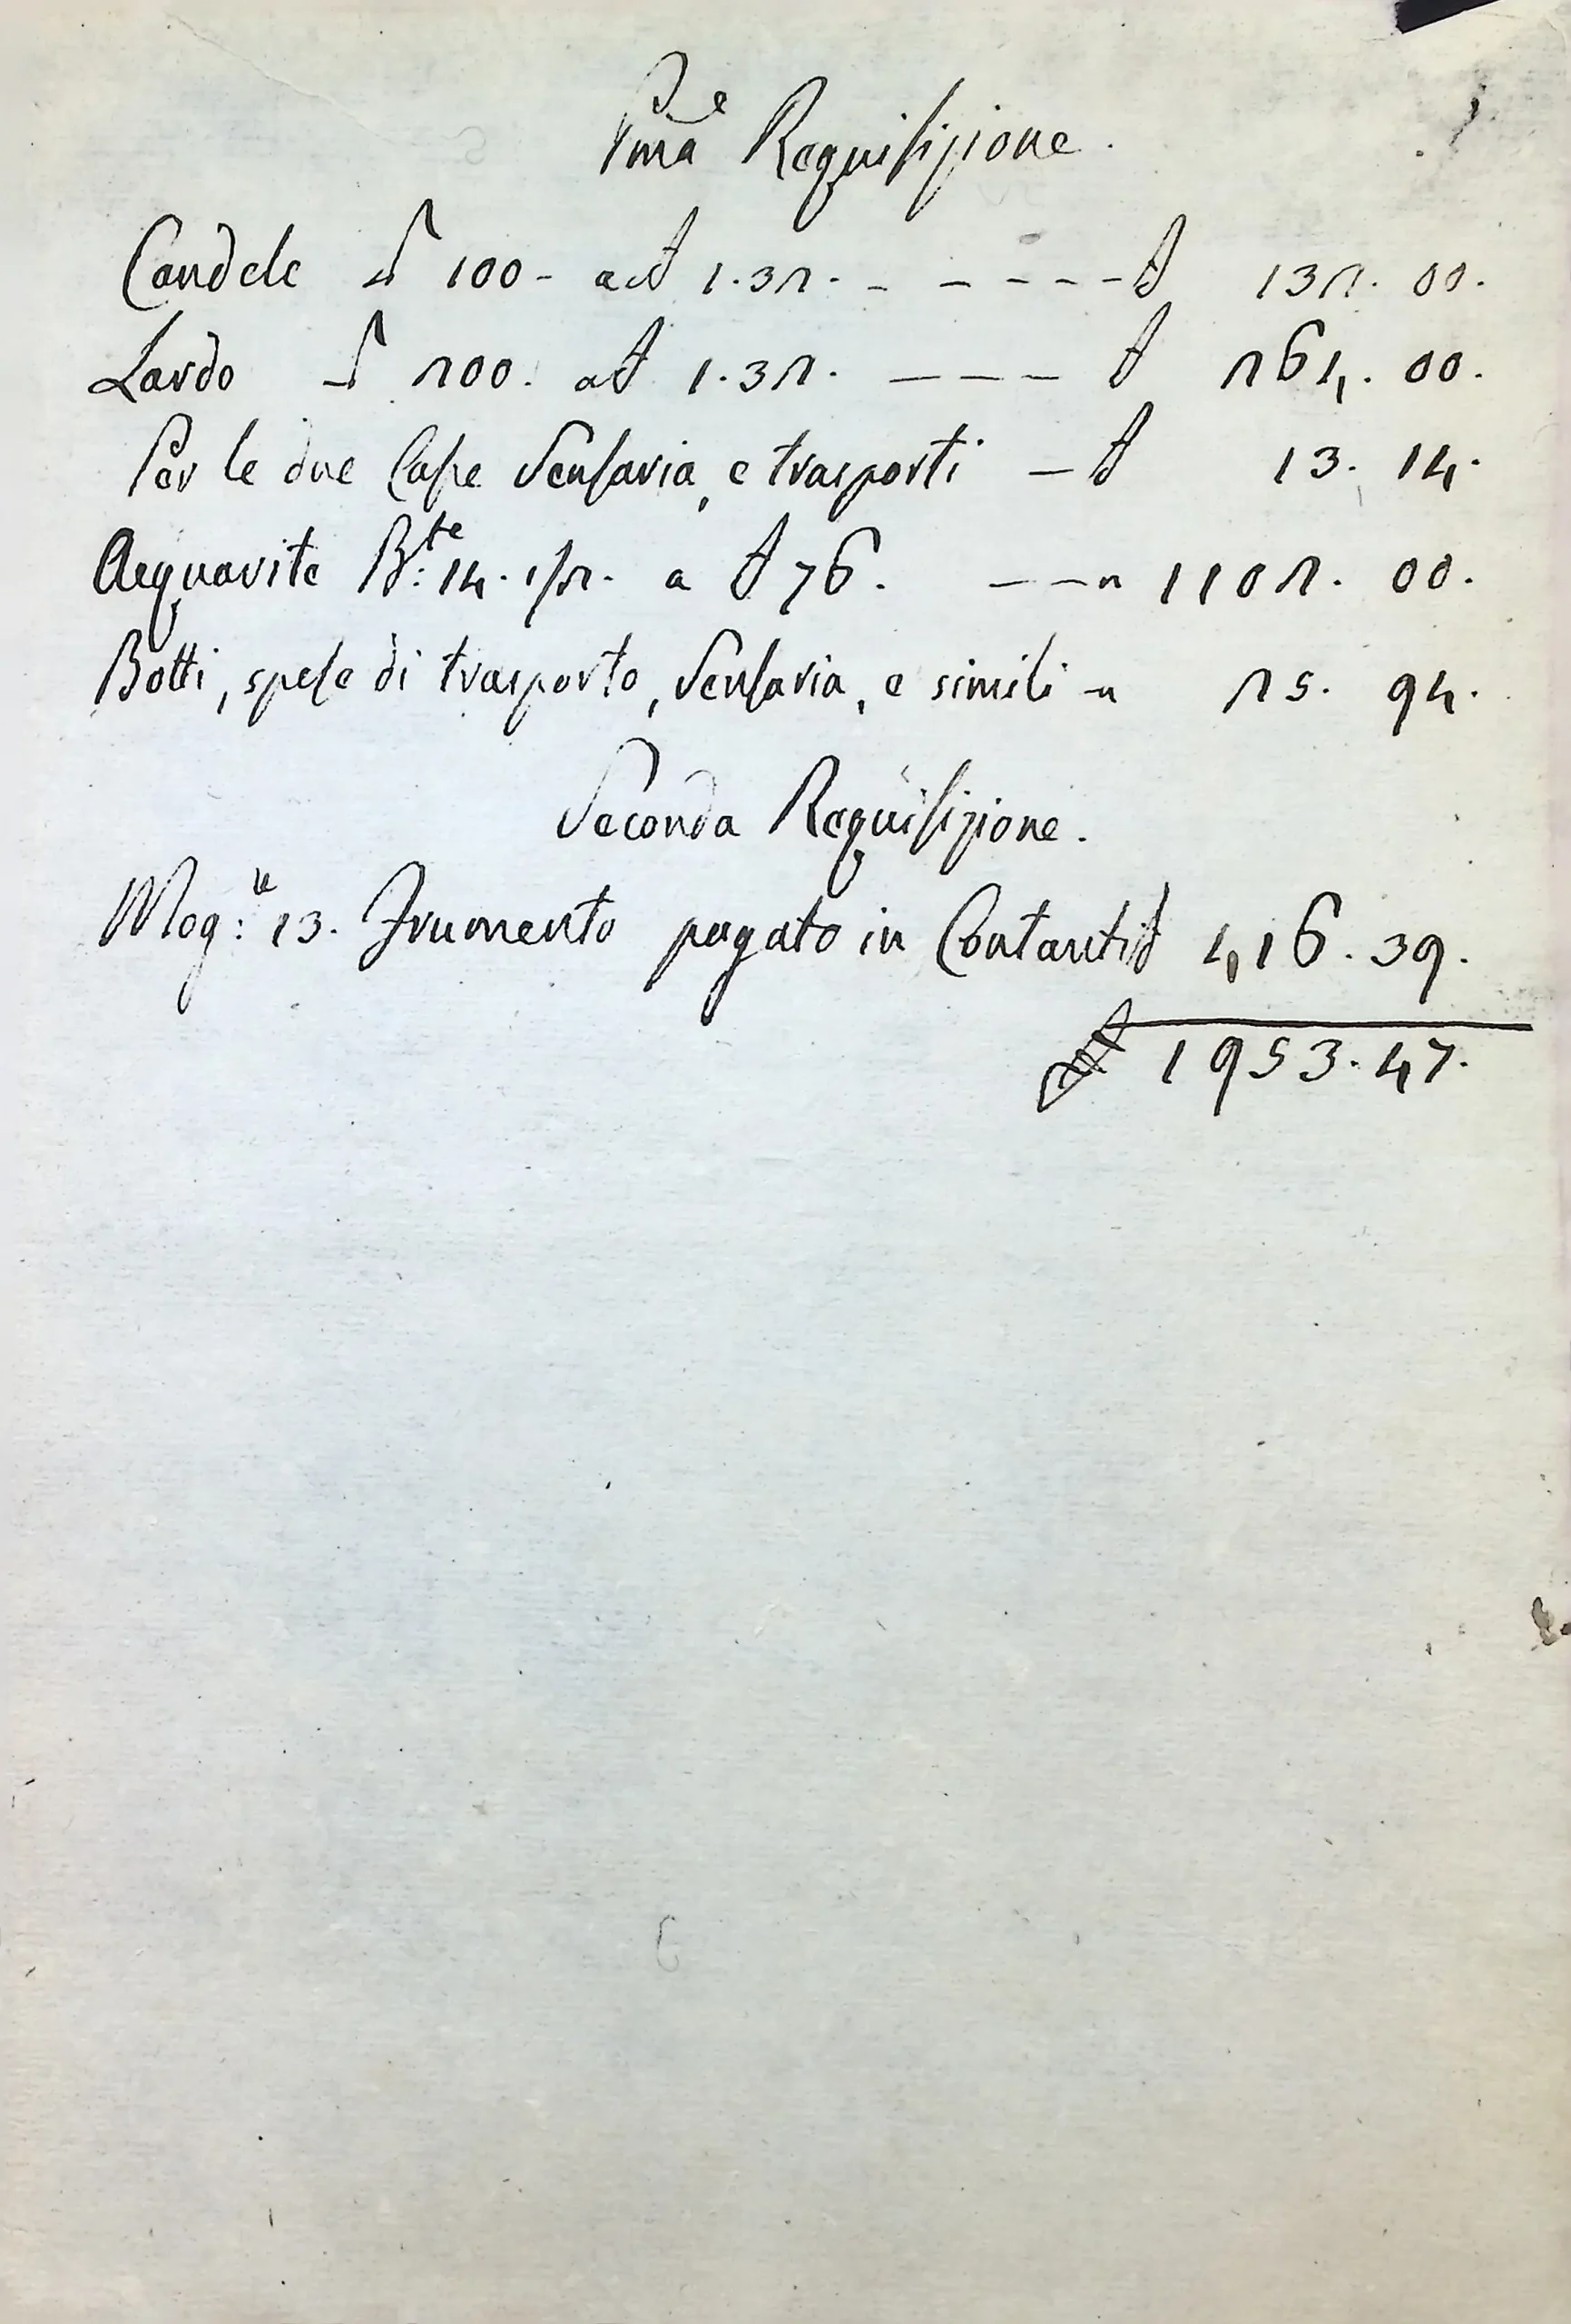 Pma Requisizione.
Candele ₶ 100 - a ₶ 1.32. - - - - - - ₶ 132. 00.
Lardo ₶ 200. a ₶ 1.32. - - - ₶ 264. 00.
Per le due Casse Sensaria, e trasporti - ₶ 13. 14.
Acquavite B:te 14. 1/2. a ₶ 76. - - " 1102. 00.
Botti, spese di trasporto, Sensaria, e simili " 25. 94.
Seconda Requisizione.
Mog: 13. Frumento pagato in Contanti ₶ 416. 39.
₶ 1953. 47.